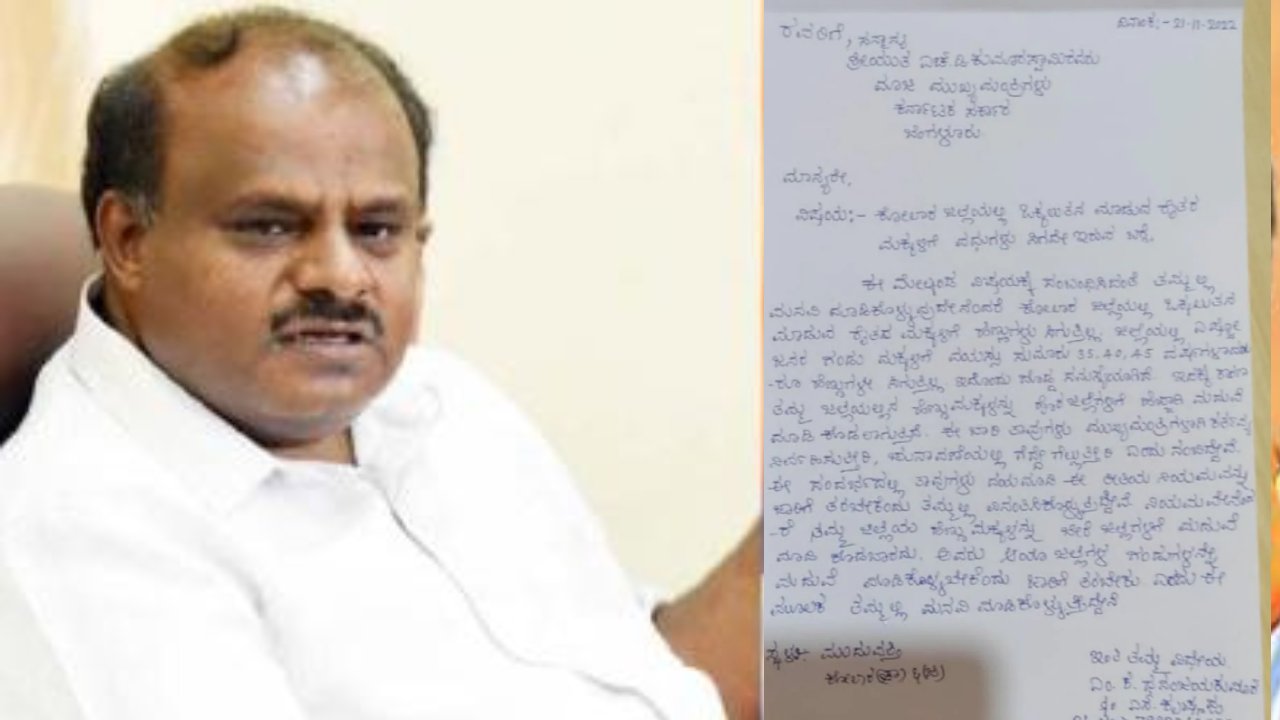 ರವರಿಗೆ, ಸನ್ಮಾನ್ಯ
ದಿನಾಂಕ:- 21-11-2022
ಶ್ರೀಯುತ ಎಚ್.ಡಿ ಕುಮಾರಸ್ವಾಮಿರವರು
ಮಾಜಿ ಮುಖ್ಯಮಂತ್ರಿಗಳು
ಕರ್ನಾಟಕ ಸರ್ಕಾರ
ಬೆಂಗಳೂರು
ಮಾನ್ಯರೇ,
ವಿಷಯ:- ಕೋಲಾರ ಜಿಲ್ಲೆಯಲ್ಲಿ ಒಕ್ಕಲುತನ ಮಾಡುವ ರೈತರ
ಮಕ್ಕಳಿಗೆ ವಧುಗಳು ಸಿಗದೇ ಇರುವ ಬಗ್ಗೆ.
ಈ ಮೇಲ್ಕಂಡ ವಿಷಯಕ್ಕೆ ಸಂಬಂಧಿಸಿದಂತೆ ತಮ್ಮಲ್ಲಿ
ಮನವಿ ಮಾಡಿಕೊಳ್ಳುವುದೇನೆಂದರೆ ಕೋಲಾರ ಜಿಲ್ಲೆಯಲ್ಲಿ ಒಕ್ಕಲುತನ
ಮಾಡುವ ರೈತರ ಮಕ್ಕಳಿಗೆ ಹೆಣ್ಣುಗಳು ಸಿಗುತ್ತಿಲ್ಲ. ಜಿಲ್ಲೆಯಲ್ಲಿ ಎಷ್ಟೋ
ಜನರ ಗಂಡು ಮಕ್ಕಳಿಗೆ ವಯಸ್ಸು ಸುಮಾರು 35.40,45 ವರ್ಷಗಳಾದರು
-ರೂ ಹೆಣ್ಣುಗಳೇ ಸಿಗುತ್ತಿಲ್ಲ ಇದೊಂದು ದೊಡ್ಡ ಸಮಸ್ಯೆಯಾಗಿದೆ. ಇದಕ್ಕೆ ಕಾರಣ
ತಮ್ಮ ಜಿಲ್ಲೆಯಲ್ಲಿನ ಹೆಣ್ಣುಮಕ್ಕಳನ್ನು ಹೊರಜಿಲ್ಲೆಗಳಿಗೆ ಹೆಚ್ಚಾಗಿ ಮದುವೆ
ಮಾಡಿ ಕೊಡಲಾಗುತ್ತಿದೆ. ಈ ಬಾರಿ ತಾವುಗಳು ಮುಖ್ಯಮಂತ್ರಿಗಳಾಗಿ ಕರ್ತವ್ಯ
ನಿರ್ವಹಿಸುತ್ತೀರಿ, ಚುನಾವಣೆಯಲ್ಲಿ ಗೆದ್ದೇ ಗೆಲ್ಲುತ್ತೀರಿ ಎಂದು ನಂಬಿದ್ದೇವೆ.
ಈ ಸಂದರ್ಭದಲ್ಲಿ ತಾವುಗಳು ದಯಮಾಡಿ ಈ ರೀತಿಯ ನಿಯಮವನ್ನು
ಜಾರಿಗೆ ತರಬೇಕೆಂದು ತಮ್ಮಲ್ಲಿ ವಿನಂತಿಸಿಕೊಳ್ಳುತ್ತಿದ್ದೇವೆ. ನಿಯಮವೇನೆಂದ
-ರೆ ನಮ್ಮ ಜಿಲ್ಲೆಯ ಹೆಣ್ಣುಮಕ್ಕಳನ್ನು ಬೇರೆ ಜಿಲ್ಲೆಗಳಿಗೆ ಮದುವೆ
ಮಾಡಿ ಕೊಡಬಾರದು. ಅವರು ಆಯಾ ಜಿಲ್ಲೆಗಳ ಗಂಡುಗಳನ್ನೇ
ಮದುವೆ ಮಾಡಿಕೊಳ್ಳಬೇಕೆಂದು ಜಾರಿಗೆ ತರಬೇಕು ಎಂದು ಈ
ಮೂಲಕ ತಮ್ಮಲ್ಲಿ ಮನವಿ ಮಾಡಿಕೊಳ್ಳುತ್ತಿದ್ದೇನೆ
ಸ್ಥಳ:- ಮುದುವತ್ತಿ
ಕೋಲಾರ(ತಾ) &(ಜಿ)
ಇಂತಿ ತಮ್ಮ ವಿಧೇಯ
ಎಂ. ಕೆ. ಧನಂಜಯಕುಮಾರ